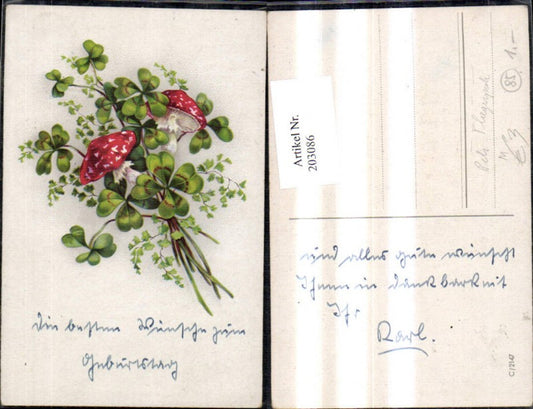 Die besten Wünsche zum
Geburtstag
Artikel Nr.
203086
und alles gute wünscht
Ihnen in dankbarkeit
Ihr
Karl.
85
1.-
€ 3